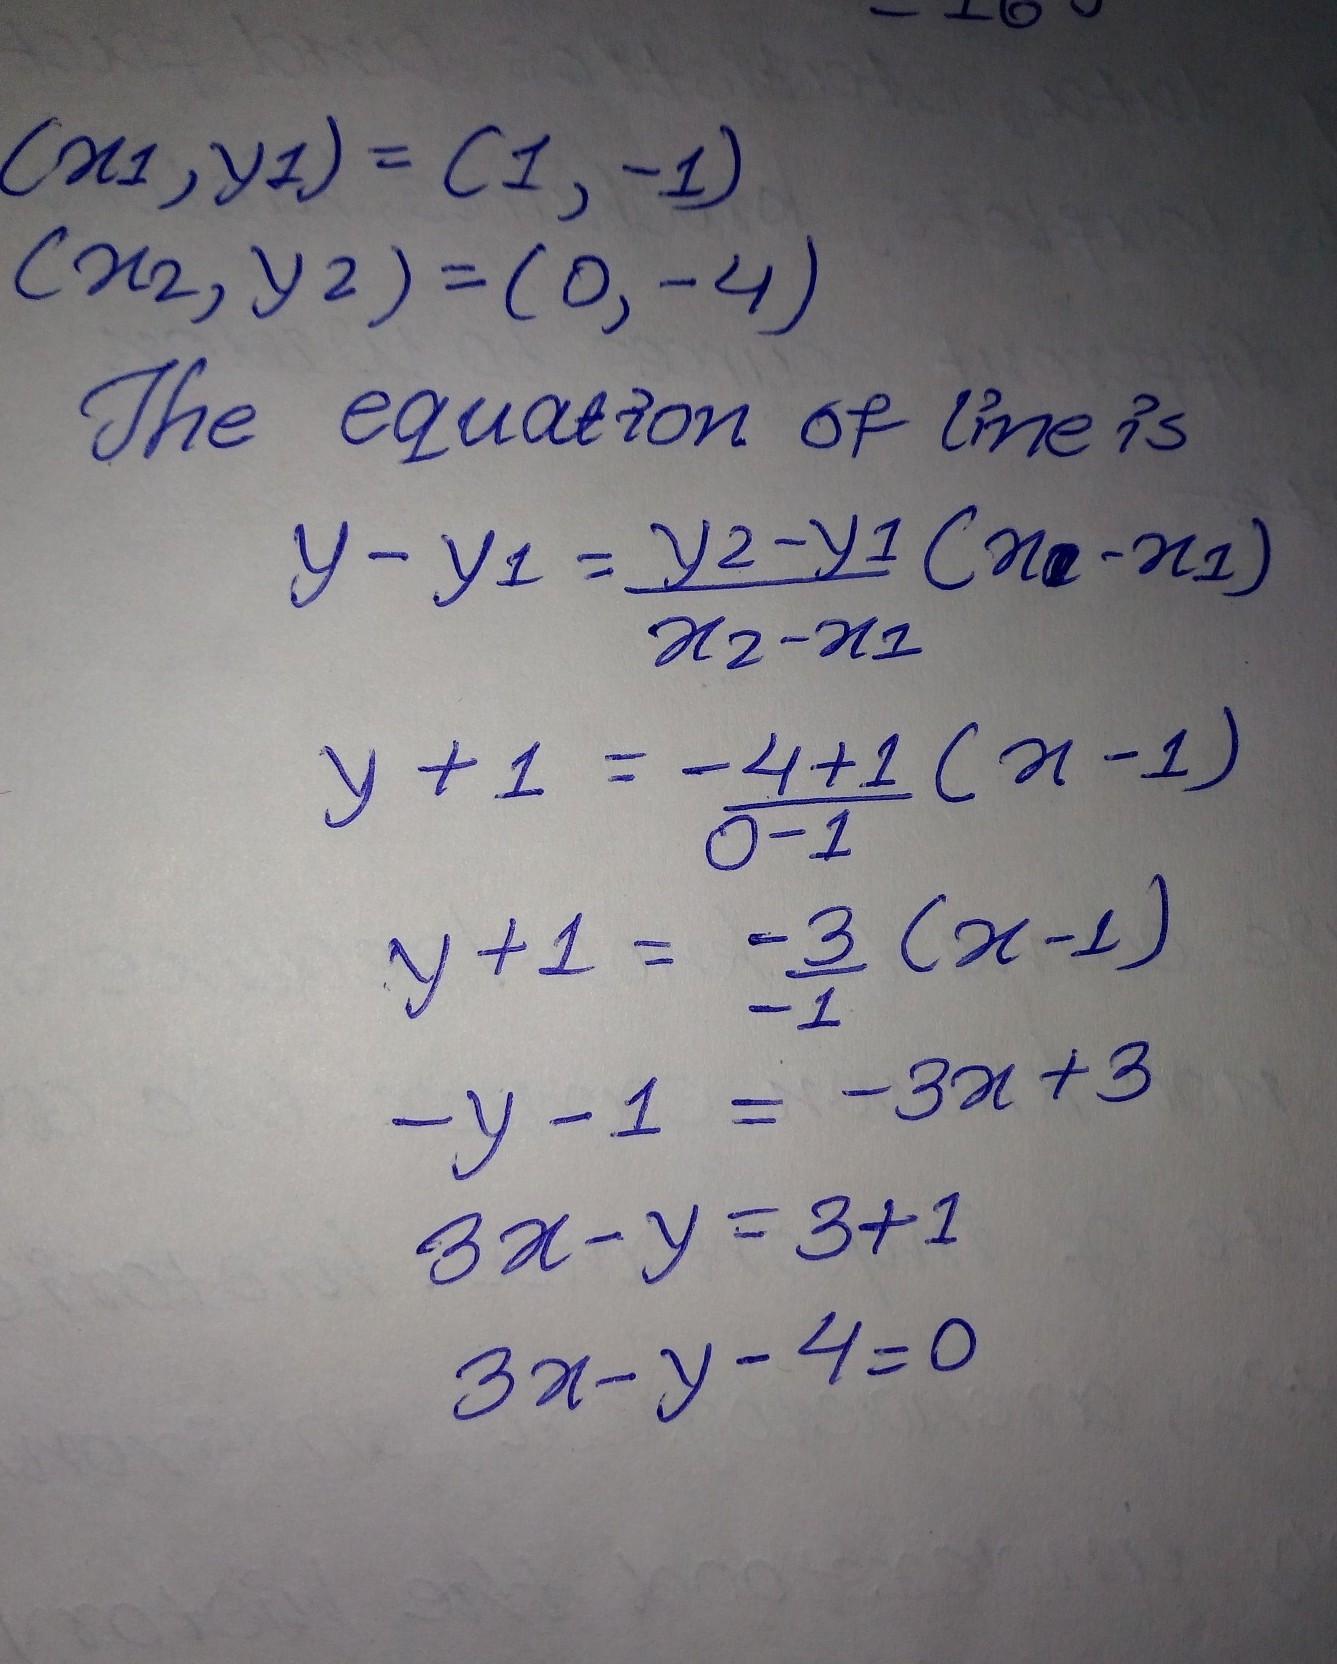 - 16
(x1, y1) = (1, -1)
(x2, y2) = (0, -4)
The equation of line is
y - y1 = y2 - y1 (x - x1)
x2 - x1
y + 1 = -4+1 (x - 1)
0-1
y + 1 = -3 (x - 1)
-1
-y - 1 = -3x + 3
3x - y = 3+1
3x - y - 4 = 0